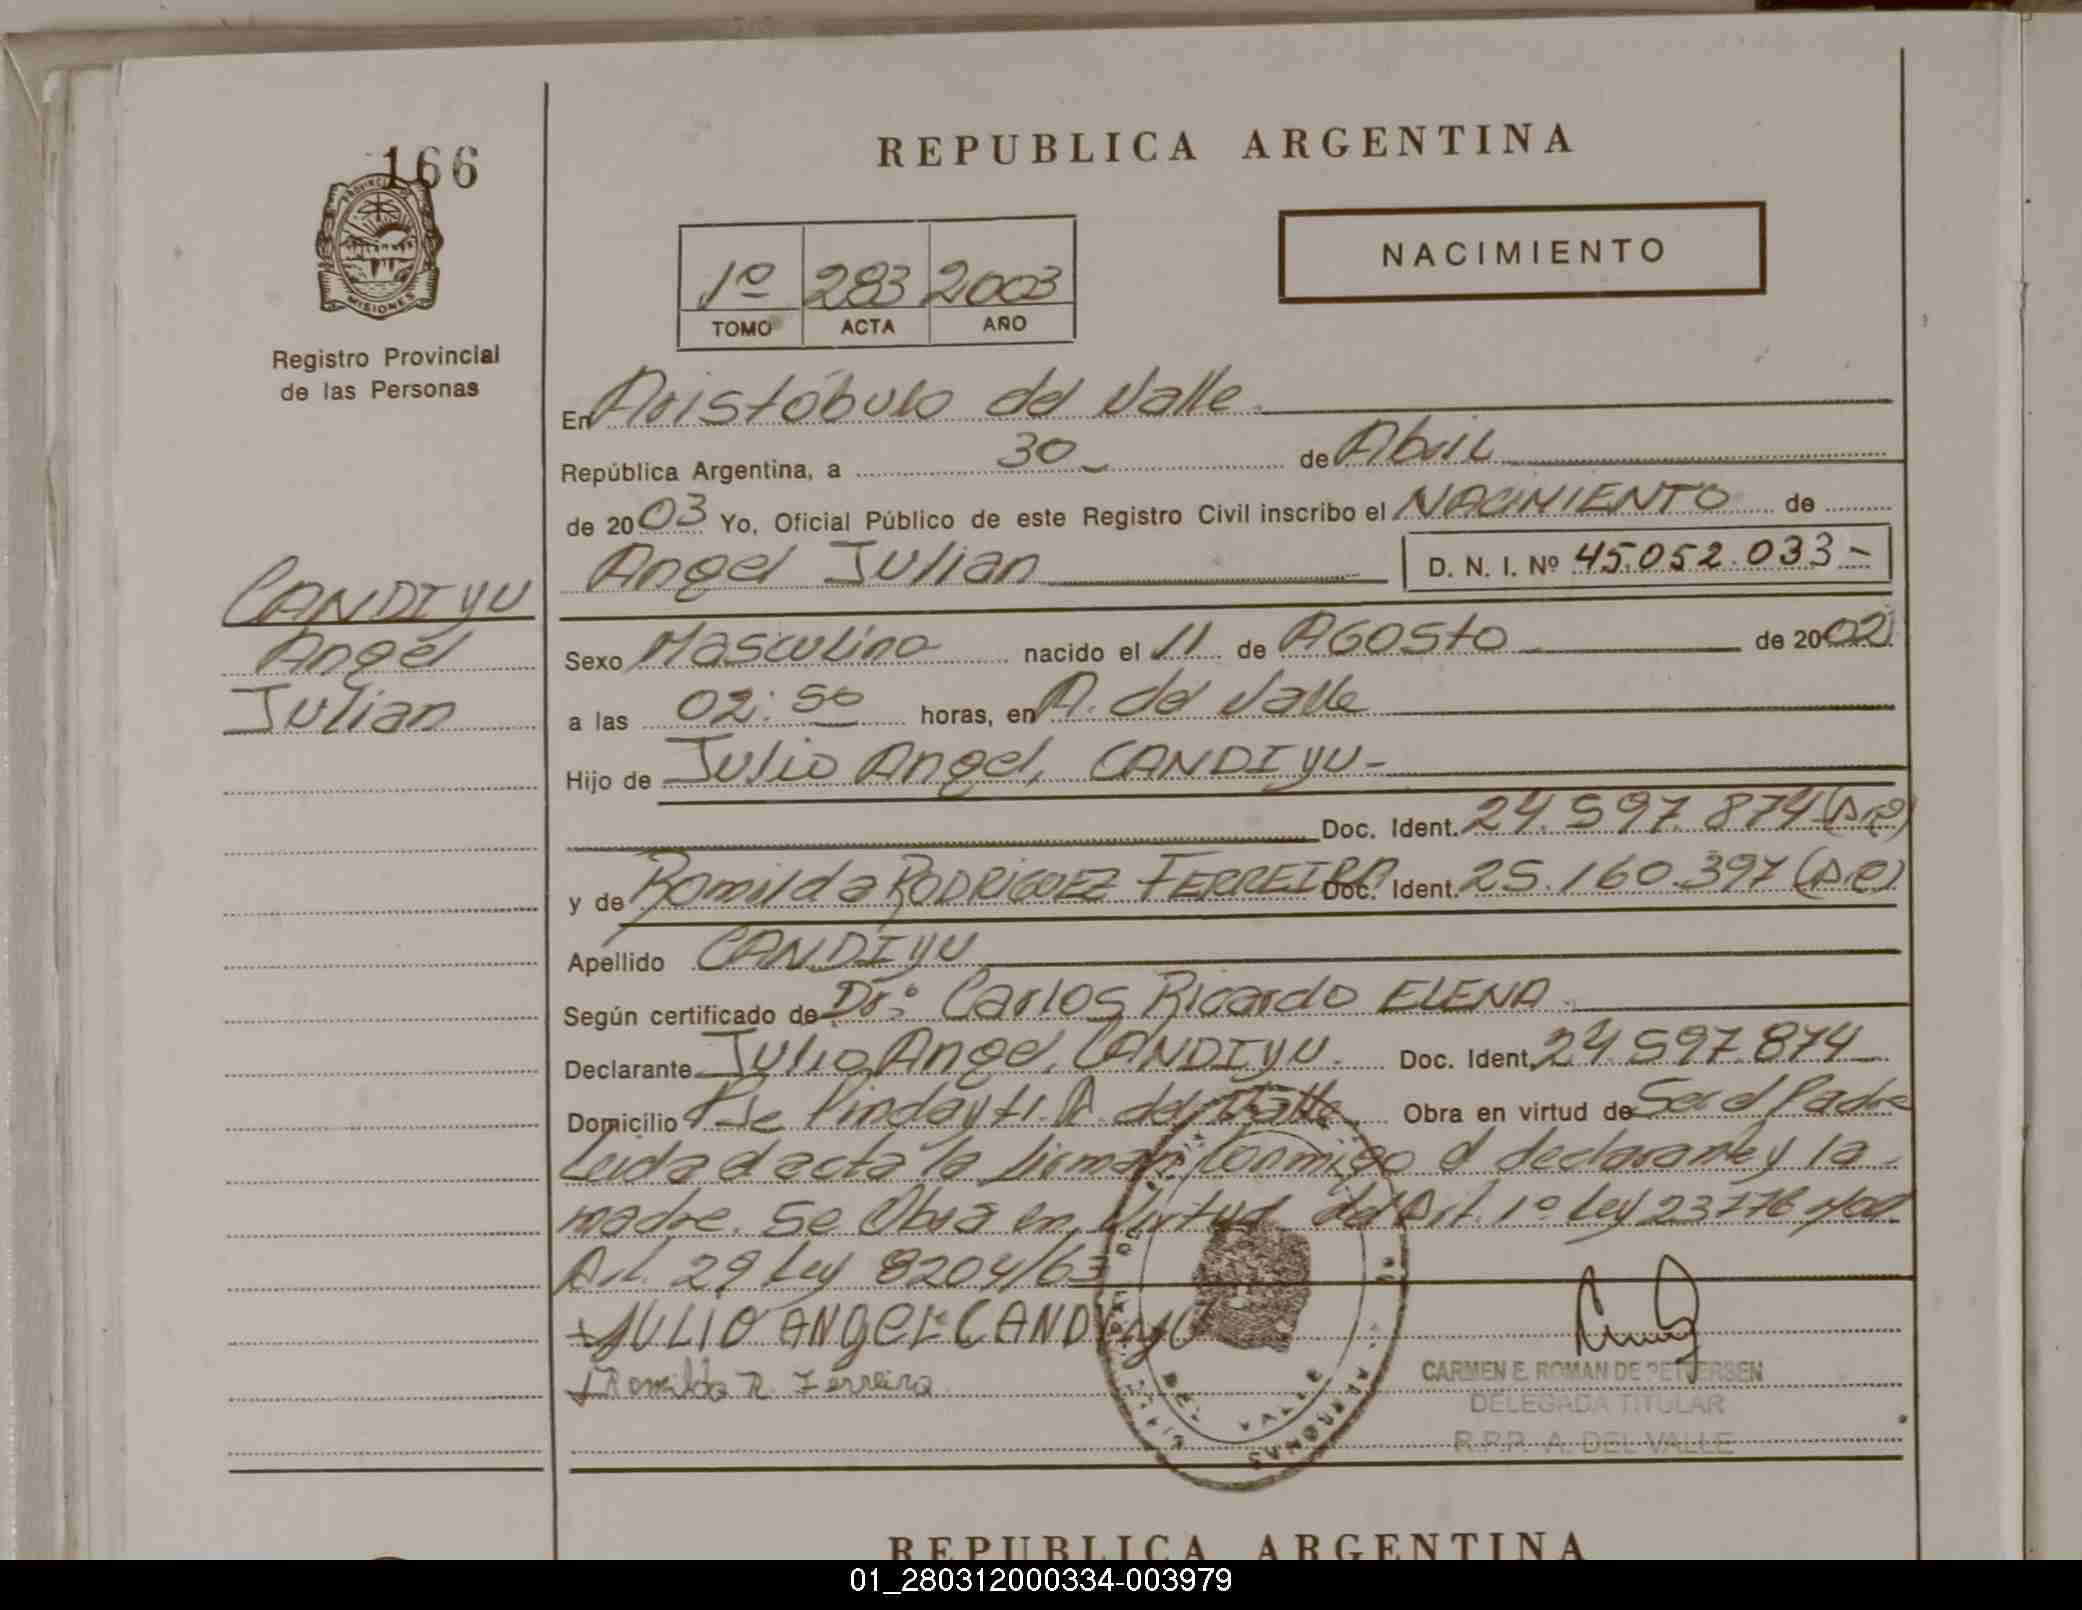 166
PROVINCIA DE
MISIONES
Registro Provincial
de las Personas
CANDIYU
Angel
Julian
REPUBLICA ARGENTINA
1º 283 2003
TOMO ACTA AÑO
NACIMIENTO
En Aristóbulo del Valle
República Argentina, a 30 de Abril
de 2003 Yo, Oficial Público de este Registro Civil inscribo el NACIMIENTO de
Angel Julian D. N. I. Nº 45.052.033-
Sexo Masculino nacido el 11 de AGOSto de 2002
a las 02:50 horas, en A. del Valle
Hijo de Julio Angel, CANDIYU-
Doc. Ident. 24.597.874
y de Romilda RODRIGUEZ FERREIRA Doc. Ident. 25.160.397
Apellido CANDIYU
Según certificado de Dr: Carlos Ricardo ELENA
Declarante Julio Angel, CANDIYU. Doc. Ident. 24.597.874
Domicilio Pindayti. A. del Valle Obra en virtud de Ser el Padre
Leida el acta la firman conmigo el declarante y la
madre. Se Obra en Virtud del Art. 1º Ley 23.776
Art. 29 Ley 8204/63
JULIO ANgEL CANDIYU
Romilda R. Ferreira
DEL VALLE
CARMEN E. ROMAN DE PETTERSEN
DELEGADA TITULAR
R.P.P. A. DEL VALLE
REPUBLICA ARGENTINA
01_280312000334-003979